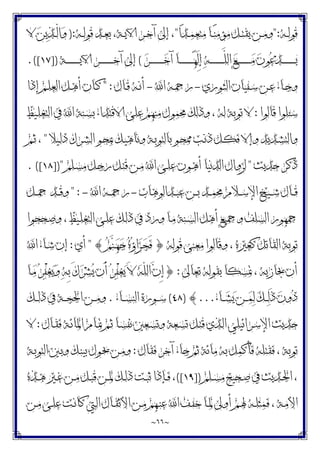 قوله: "ومن يقتل مؤمناً متعمداً"، إلى آخر الآية، بعد قوله: (والذين لا
يدعون مع الله إلهاً آخر ) إلى آخر الآية ([١٧]).
وجاء عن سفيان الثوري - رحمه الله - أنه قال: "كان أهل العلم إذا
سئلوا قالوا: لا توبة له، وذلك محمول منهم على الاقتداء بسنة الله في التغليظ
والتشديد وإلا فكل ذنب ممحو بالتوبة وناهيك بمحو الشرك دليلاً"، ثم
ذكر حديث "لزوال الدنيا أهون على الله من قتل رجل مسلم" ([١٨]).
قال شيخ الإسلام محمد بن عبد الوهاب - رحمه الله - : "وقد حمل
جمهور السلف وجميع أهل السنة ما ورد في ذلك على التغليظ، وصححوا
توبة القاتل كغيره، وقالوا معنى قوله ﴿ فَجَزَاؤُهُ جَهَنَّمُ ﴾ أي: إن شاء الله
أن يجازيه، تمسكاً بقوله تعالى: ﴿ إِنَّ اللَّهَ لَا يَغْفِرُ أَن يُشْرَكَ بِهِ وَيَغْفِرُ مَا
دُونَ ذَٰلِكَ لِمَن يَشَاءُ . . . ﴾ (٤٨) سورة النساء. ومن الحجة في ذلك
حديث الإسرائيلي الذي قتل تسعة وتسعين نفساً ثم تمام المائة فقال: لا
توبة، فقتله فأكمل به مائة ثم جاء آخر فقال: ومن يحول بينك وبين التوبة
، الحديث في صحيح مسلم ([١٩])، فإذا ثبت ذلك لمن قبل من غير هذه
الأمة، فمثله لهم أولى لما خفف الله عنهم من الأثقال التي كانت على من
~١٦~